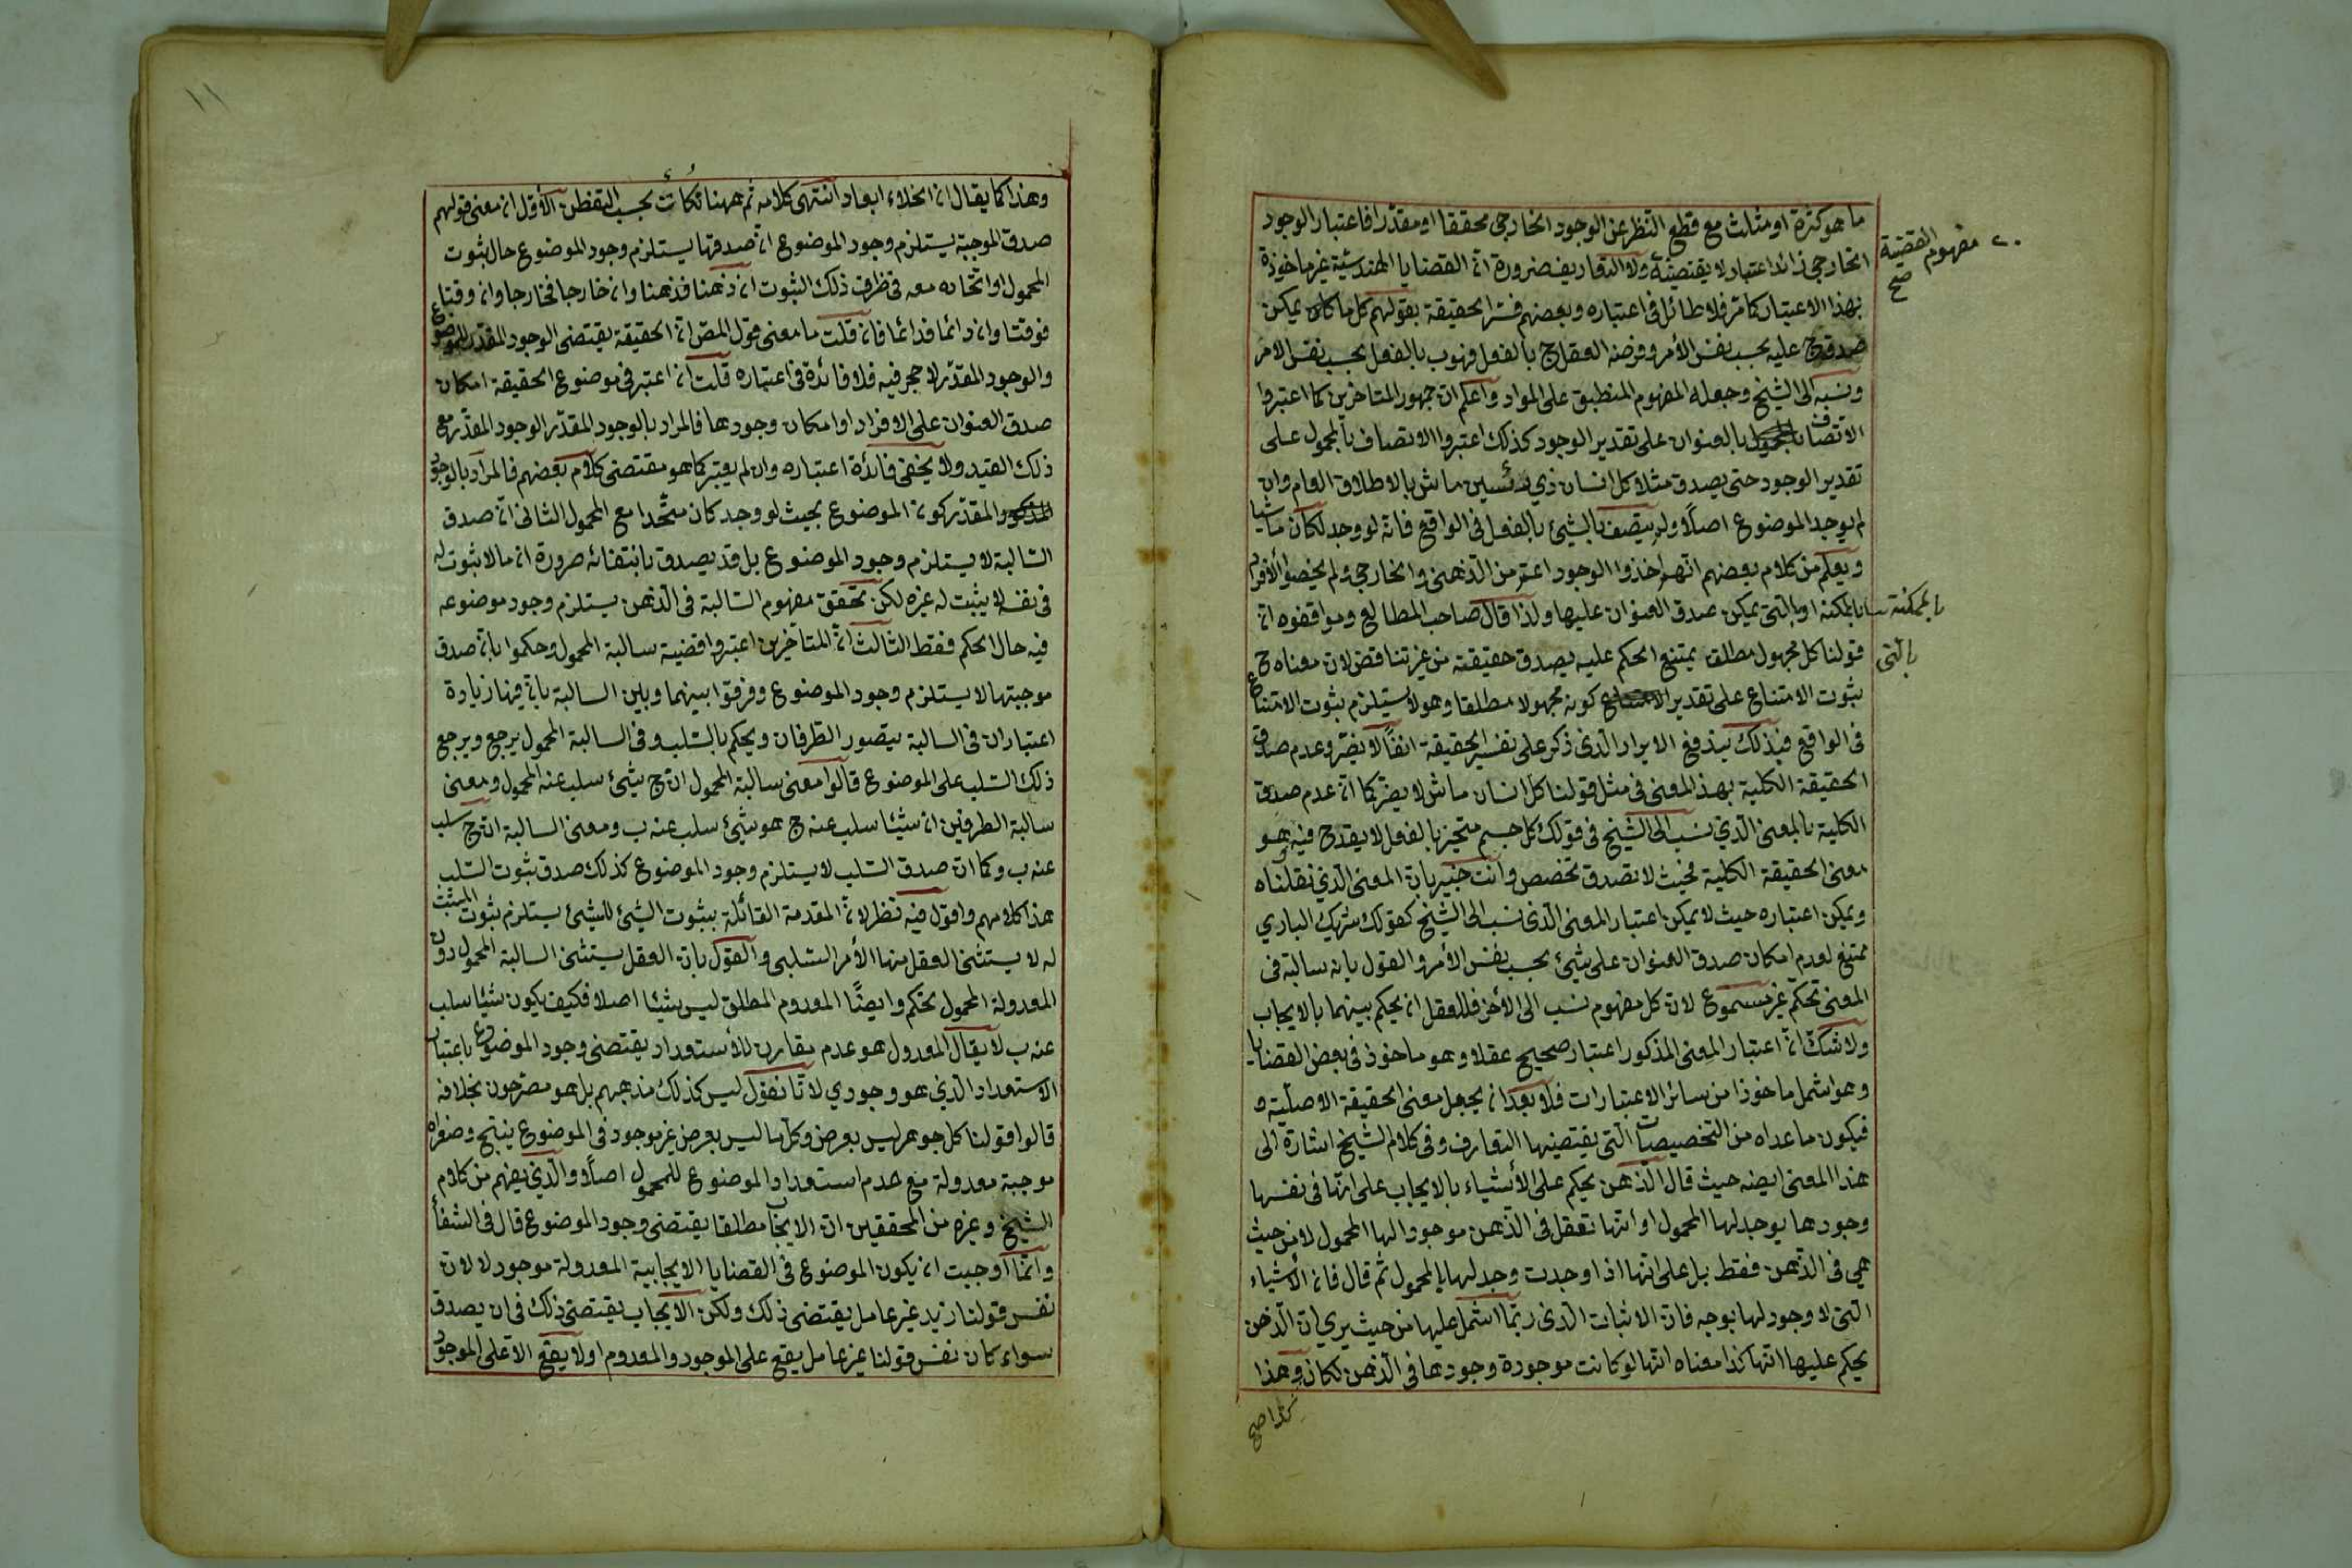 ما هو كثرة او مثلث مع قطع النظر عن الوجود الخارجي محققا او مقدرا فاعتبار الوجود
الخارجي زائد اعتبار لا يقتضيه ولا التعاريف ضرورة ان القضايا الهندسية غير ماخوذة
مفهوم القضية صح
بهذا الاعتبار كما مر فلا طائل في اعتباره وبعضهم فسر الحقيقة بقولهم كل ما كان يمكن
صدق ج عليه بحسب نفس الأمر وفرضه العقل ج بالفعل فهو ب بالفعل بحسب نفس الامر
ونسبه الى الشيخ وجعله المفهوم المنطبق على المواد واعلم ان جمهور المتاخرين كما اعتبروا
الاتصاف بالعنوان على تقدير الوجود كذلك اعتبروا الاتصاف بالمحمول على
تقدير الوجود حتى يصدق مثلا كل انسان ذي رئسين ماش بالاطلاق العام وان
لم يوجد الموضوع اصلا ولم يتصف بالشيئ بالفعل في الواقع فانه لو وجد لكان ماشيا
ويعلم من كلام بعضهم انهم اخذوا الوجود اعم من الذهني والخارجي ولم يخصوا الأفراد
بالممكنة او بالتي يمكن صدق العنوان عليها ولذا قال صاحب المطالع وموافقوه ان
بالممكنة
بالتي
قولنا كل مجهول مطلق يمتنع الحكم عليه يصدق حقيقته من غير تناقض لان معناه ح
ثبوت الامتناع على تقدير كونه مجهولا مطلقا وهو لا يستلزم ثبوت الامتناع
في الواقع فبذلك يندفع الايراد الذي ذكر على تفسير الحقيقة انفا لا يضر وعدم صدق
الحقيقة الكلية بهذ المعنى في مثل قولنا كل انسان ماش لا يضر كما ان عدم صدق
الكلية بالمعنى الذي نسب الى الشيخ في قولك كل جسم متحيز بالفعل لا يقدح فيه هو
معنى الحقيقة الكلية فحيث لا تصدق تخصص وانت خبير بان المعنى الذي نقلناه
ويمكن اعتباره حيث لا يمكن اعتبار المعنى الذي نسب الى الشيخ كقولك شريك الباري
ممتنع لعدم امكان صدق العنوان على شيئ بحسب نفس الأمر والقول بانه سالبة في
المعنى تحكم غير مسموع لان كل مفهوم نسب الى الأخر فللعقل ان يحكم بينهما بالايجاب
ولا شك ان اعتبار المعنى المذكور اعتبار صحيح عقلا وهو ماخوذ في بعض القضايا
وهو اشمل ماخوذا من سائر الاعتبارات فلا بعد ان يجعل معنى الحقيقة الاصلية و
فيكون ما عداه من التخصيصات التي يقتضيها التعارف وفي كلام الشيخ اشارة الى
هذا المعنى ايضه حيث قال الذهن يحكم على الأشياء بالايجاب على انها في نفسها
وجودها يوجد لها المحمول او انها تعقل في الذهن موجودا لها المحمول لا من حيث
هي في الذهن فقط بل على انها اذا وجدت وجد لها المحمول ثم قال فان الأشياء
التي لا وجود لها بوجه فان الاثبات الذي ربما اشمل عليها من حيث يري ان الذهن
يحكم عليها انها كذا معناه انها لو كانت موجودة وجودها في الذهن لكان وهذا
كذا صح
١١
وهذا كما يقال ان الخلاء ابعاد انتهى كلامه ثم ههنا نكات يجب التفطن الأول ان معنى قولهم
صدق الموجبة يستلزم وجود الموضوع ان صدقها يستلزم وجود الموضوع حال ثبوت
المحمول او اتحاده معه في ظرف ذلك الثبوت ان ذهنا فذهنا وان خارجا فخارجا وان وقتا
فوقتا وان دائما فدائما فان قلت ما معنى قول المص ان الحقيقة يقتضي الوجود المقدر للموضوع
والوجود المقدر لا حجر فيه فلا فائدة في اعتباره قلت ان اعتبر في موضوع الحقيقة امكان
صدق العنوان على الافراد او امكان وجودها فالمراد بالوجود المقدر الوجود المقدر مع
ذلك القيد ولا يخفى فائدة اعتباره وان لم يعتبر كما هو مقتضى كلام بعضهم فالمراد بالوجود
المقدر كون الموضوع بحيث لو وجد كان متحدا مع المحمول الثاني ان صدق
السالبة لا يستلزم وجود الموضوع بل قد يصدق بانتفائه ضرورة ان ما لا ثبوت له
في نفسه لا يثبت له غيره لكن تحقق مفهوم السالبة في الذهن يستلزم وجود موضوعه
فيه حال الحكم فقط الثالث ان المتأخرين اعتبروا قضية سالبة المحمول وحكموا بان صدق
موجبتها لا يستلزم وجود الموضوع وفرقوا بينهما وبين السالبة بان فيها زيادة
اعتبار ان في السالبة يتصور الطرفان ويحكم بالسلب وفي السالبة المحمول يرجع ويرجع
ذلك السلب على الموضوع قالوا معنى سالبة المحمول ان ج شيئ سلب عنه المحمول ومعنى
سالبة الطرفين ان شيئا سلب عنه ج هو شيئ سلب عنه ب ومعنى السالبة ان ج سلب
عنه ب وكما ان صدق السلب لا يستلزم وجود الموضوع كذلك صدق ثبوت السلب
هذا كلامهم واقول فيه نظر لان المقدمة القائلة بثبوت الشيئ للشيئ يستلزم ثبوت المثبت
له لا يستثني العقل منها الأمر السلبي والقول بان العقل يستثنى السالبة المحمول دون
المعدولة المحمول تحكم وايضا المعدوم المطلق ليس شيئا اصلا فكيف يكون شيئا سلب
عنه ب لا يقال المعدول هو عدم مقارن للأستعداد يقتضي وجود الموضوع باعتبار
الاستعداد الذي هو وجودي لانا نقول ليس كذلك مذهبهم بل هو مصرحون بخلافه
قالوا قولنا كل جوهر ليس بعرض وكل ما ليس بعرض غير موجود في الموضوع ينتج وصغراه
موجبة معدولة مع عدم استعداد الموضوع للمحمول اصلا والذي يفهم من كلام
الشيخ وغيره من المحققين ان الايجاب مطلقا يقتضي وجود الموضوع قال في الشفأ
وانما اوجبت ان يكون الموضوع في القضايا الايجابية المعدولة موجود لا لان
نفس قولنا زيد غير عامل يقتضي ذلك ولكن الايجاب يقتضي ذلك في ان يصدق
سواء كان نفس قولنا غير عامل يقع على الموجود والمعدوم او لا يقع الا على الموجود